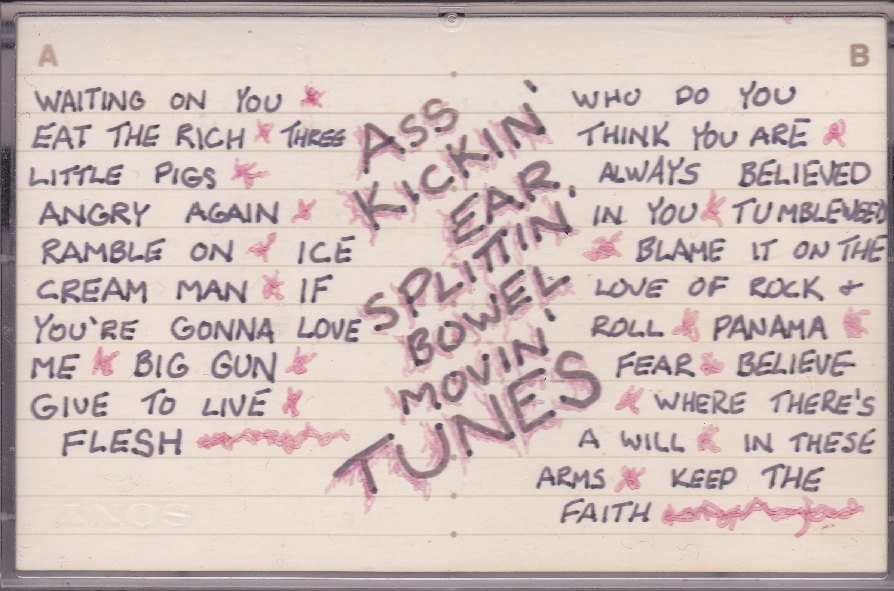 A
B
WAITING ON YOU
EAT THE RICH THREE
LITTLE PIGS
ANGRY AGAIN
RAMBLE ON ICE
CREAM MAN IF
YOU'RE GONNA LOVE
ME BIG GUN
GIVE TO LIVE
FLESH
ASS
KICKIN'
EAR
SPLITTIN'
BOWEL
MOVIN'
TUNES
WHO DO YOU
THINK YOU ARE
ALWAYS BELIEVED
IN YOU TUMBLEWEED
BLAME IT ON THE
LOVE OF ROCK &
ROLL PANAMA
FEAR BELIEVE
WHERE THERE'S
A WILL IN THESE
ARMS KEEP THE
FAITH
SONY